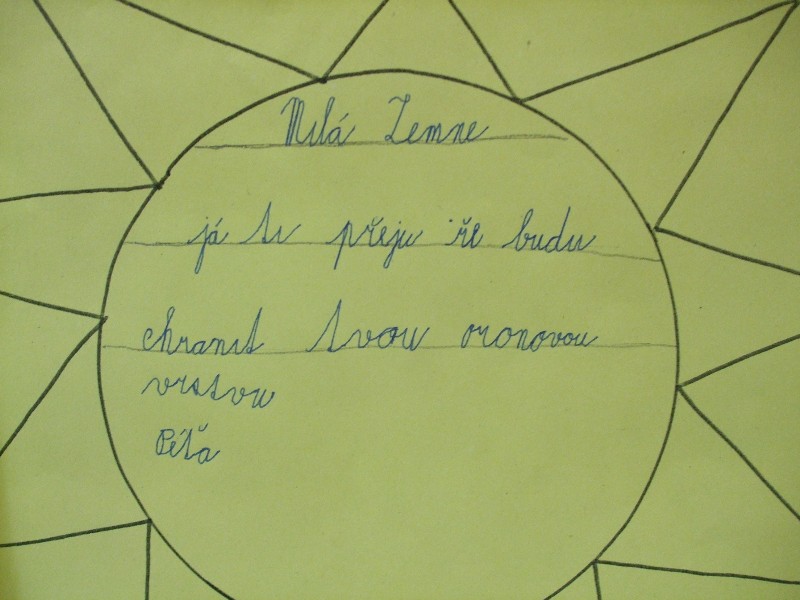 Milá Zemne
já ti přeju že budu
chranit tvou ozonovou
vrstvu
Péťa